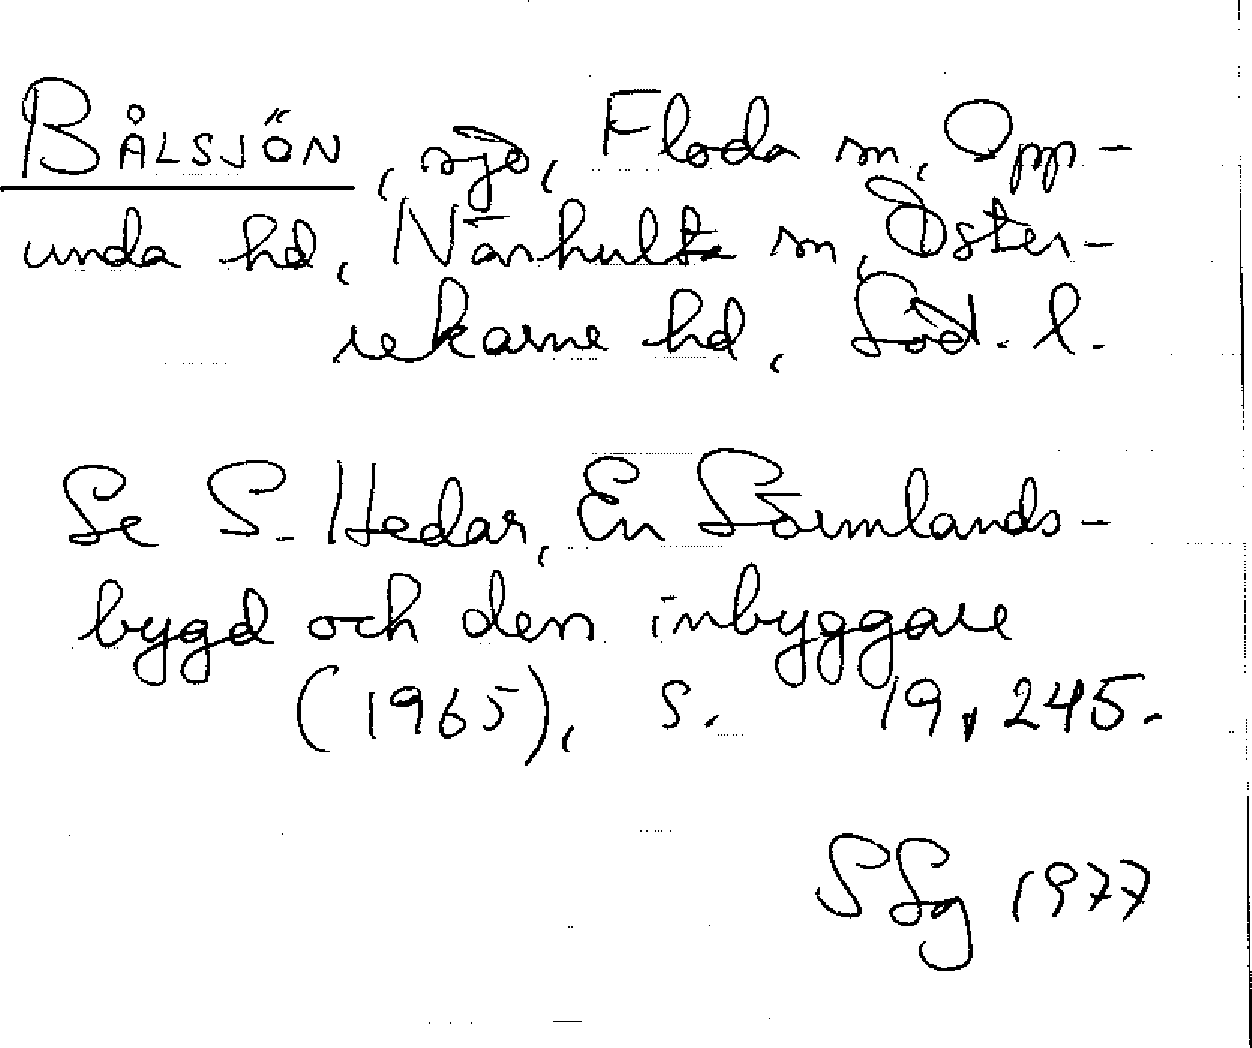 BÅLSJÖN, sjö, Floda sn, Opp-
unda hd, Närhulta sn, Öster-
rekarne hd, Söd. l.
Se S. Hedar, En Sörmlands-
bygd och dess inbyggare
(1965), s. 19, 245.
SSg 1977